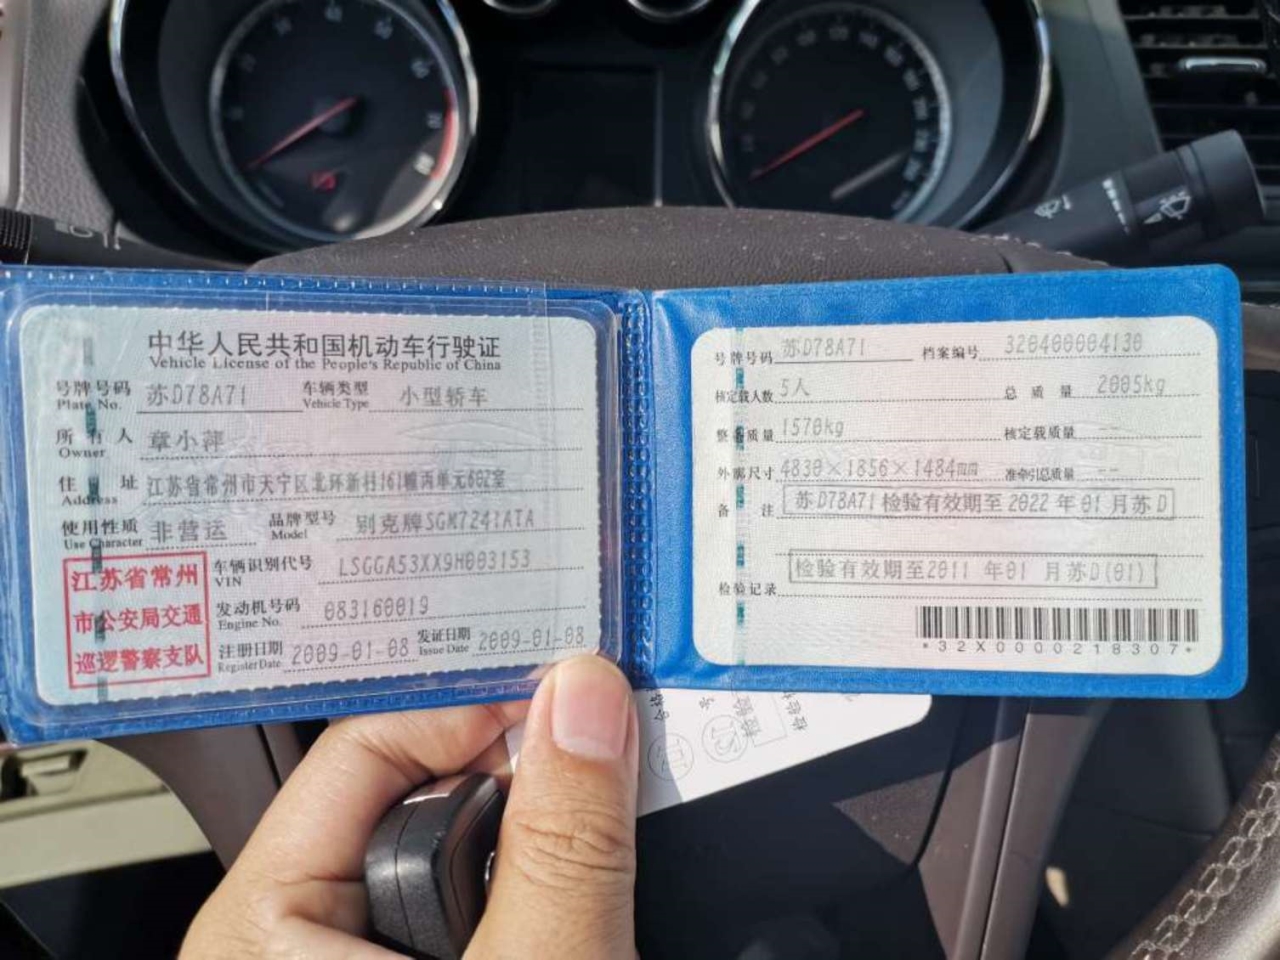 中华人民共和国机动车行驶证
Vehicle License of the People's Republic of China
号牌号码 苏D78A71 车辆类型 小型轿车
Plate No. Vehicle Type
所有人 章小萍
Owner
住址 江苏省常州市天宁区北环新村161幢丙单元602室
Address
使用性质 非营运 品牌型号 别克牌SGM7241ATA
Use Character Model
江苏省常州市公安局交通巡逻警察支队
车辆识别代号 LSGGA53XX9H003153
VIN
发动机号码 083160019
Engine No.
注册日期 2009-01-08 发证日期 2009-01-08
Register Date Issue Date
号牌号码 苏D78A71 档案编号 320400004130
核定载人数 5人 总质量 2005kg
整备质量 1570kg 核定载质量 --
外廓尺寸 4830×1856×1484mm 准牵引总质量 --
备注 苏D78A71检验有效期至2022年01月苏D
检验有效期至2011年01月苏D(01)
检验记录
*32X0000218307*